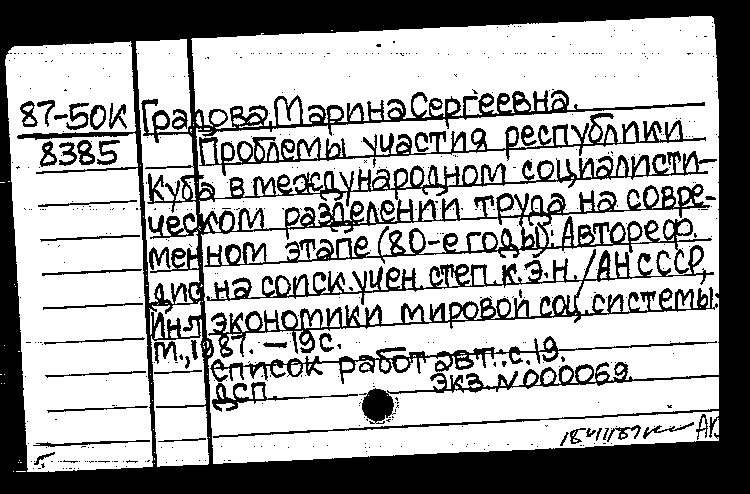 87-50К Градова, Марина Сергеевна.
8385 Проблемы участия республики
Куба в международном социалисти-
ческом разделении труда на совре-
менном этапе (80-е годы): Автореф.
дис. на соиск. учен. степ. к. э. н. / АН СССР,
Ин-т экономики мировой соц. системы.
М., 1987. — 19 с.
Список работ авт.: с. 19.
ДСП. Экз. N 000069.